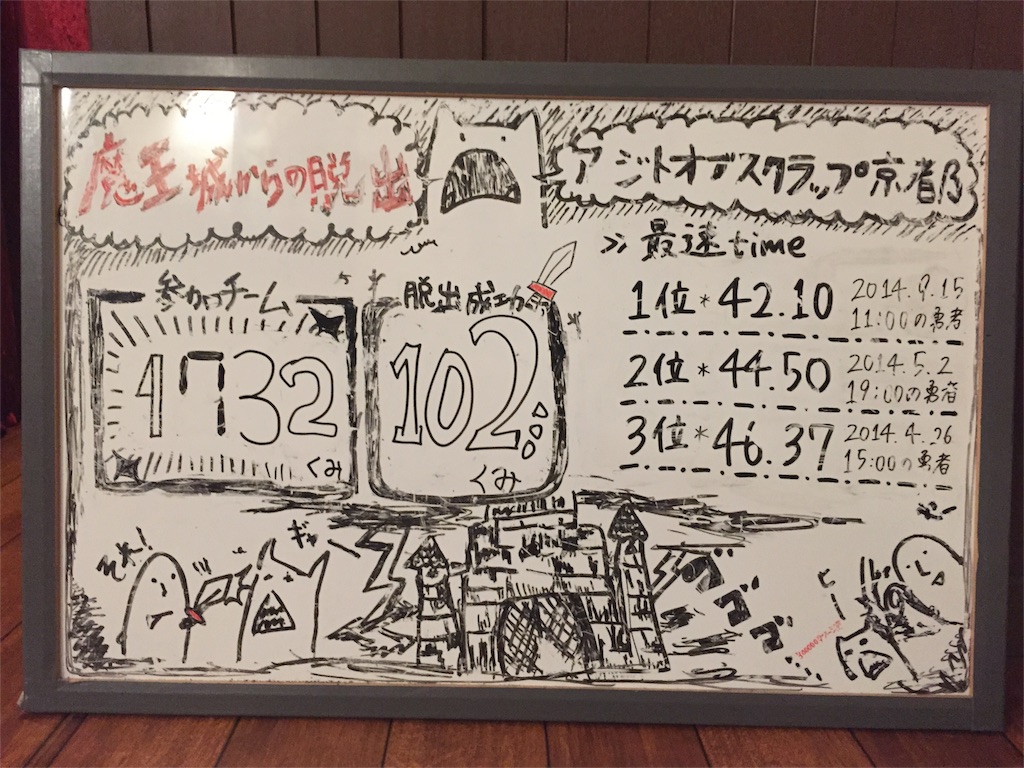 魔王城からの脱出
アジトオブスクラップ京都
>> 最速time
参加チーム
1732
くみ
脱出成功
102
くみ
1位*42.10
2014.9.15
11:00の勇者
2位*44.50
2014.5.2
19:00の勇者
3位*46.37
2014.4.26
15:00の勇者
それ!
ギャ
ゴゴゴ
ヒー